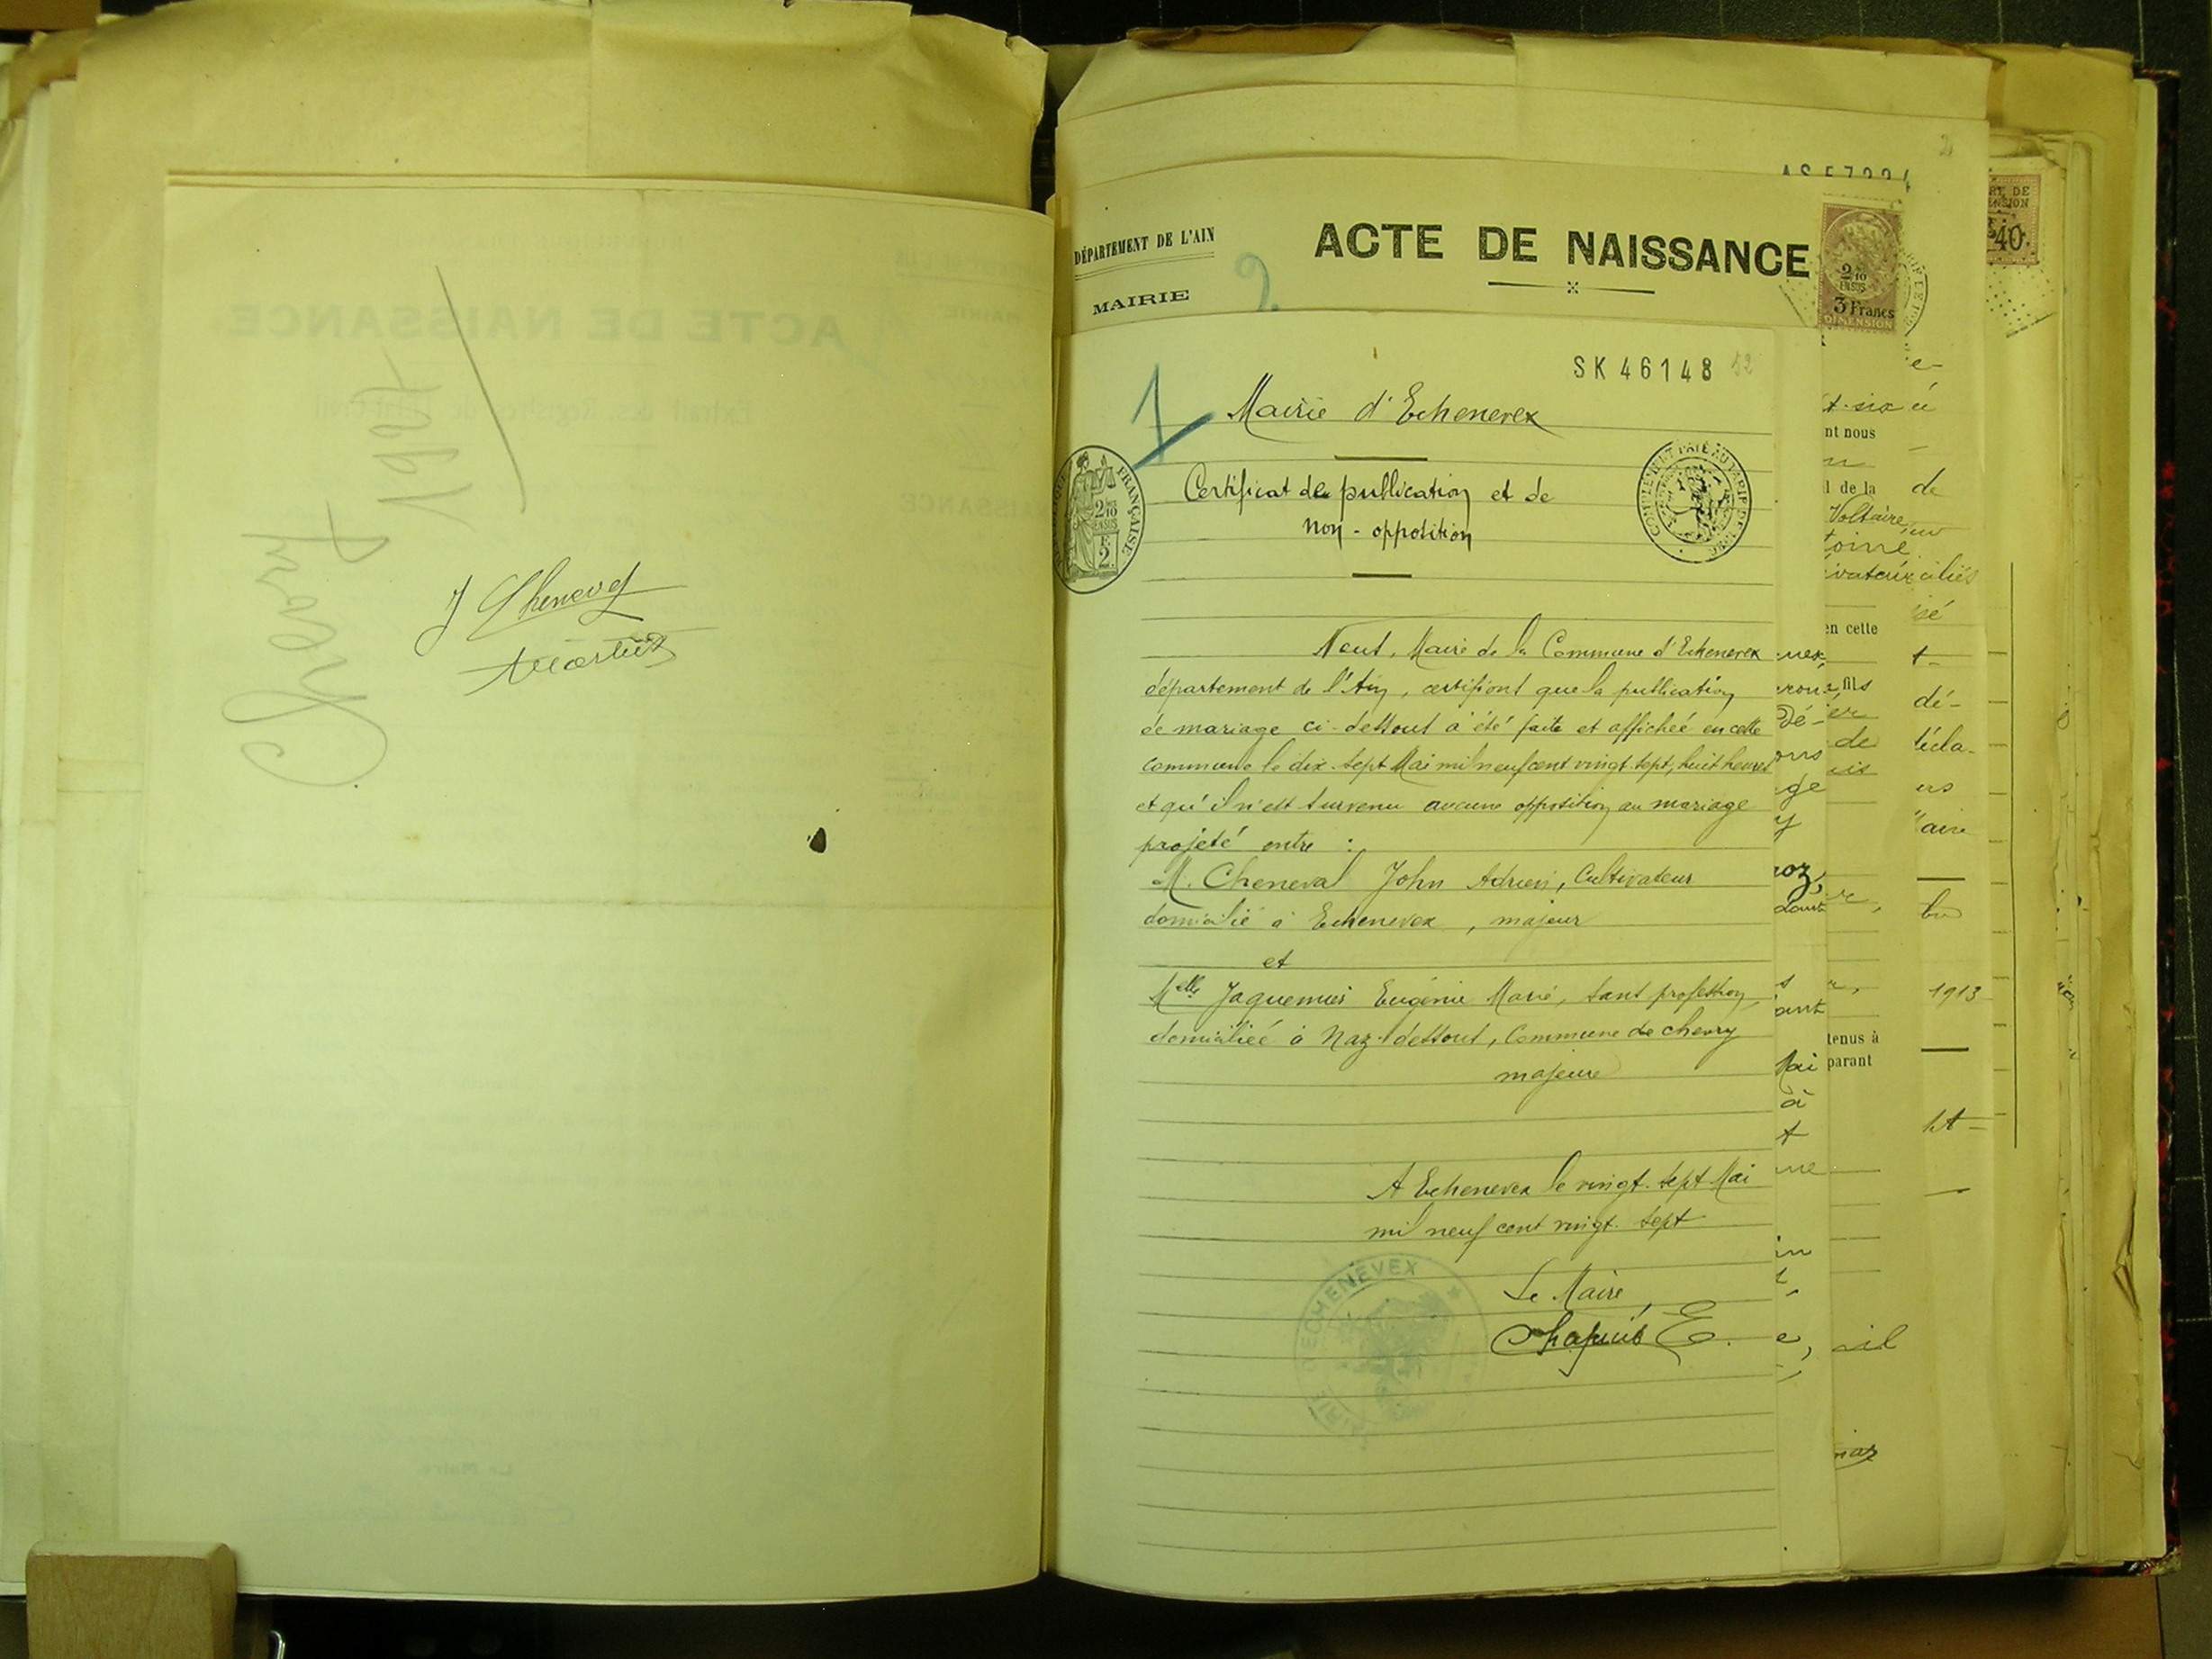 Chevry
1927
J Cheneval
DÉPARTEMENT DE L'AIN
MAIRIE
ACTE DE NAISSANCE
2
2/10
EN SUS
3 Francs
DIMENSION
40
2
SK 46148
1
Mairie d'Echenevex
FRANÇAISE
2/10
EN SUS
2
COMPLEMENT PAYE AU TARIF DE
Certificat de publication et de
non-opposition
Nous, Maire de la Commune d'Echenevex
département de l'Ain, certifions que la publication
de mariage ci-dessous a été faite et affichée en cette
commune le dix-sept Mai mil neuf cent vingt-sept, huit heures
et qu'il n'est survenu aucune opposition au mariage
projeté entre :
M. Cheneval John Adrien, Cultivateur
domicilié à Echenevex, majeur
et
Melle Jaquemier Eugénie Marie, sans profession,
domiciliée à Naz-dessous, Commune de Chevry
majeure
A Echenevex le vingt-sept Mai
mil neuf cent vingt-sept
Le Maire,
Chapuis E.
MAIRIE D'ECHENEVEX
nt nous
l de la
de
Voltaire,
en cette
fils
dé-
de
1913
tenus à
parant
Mai
à